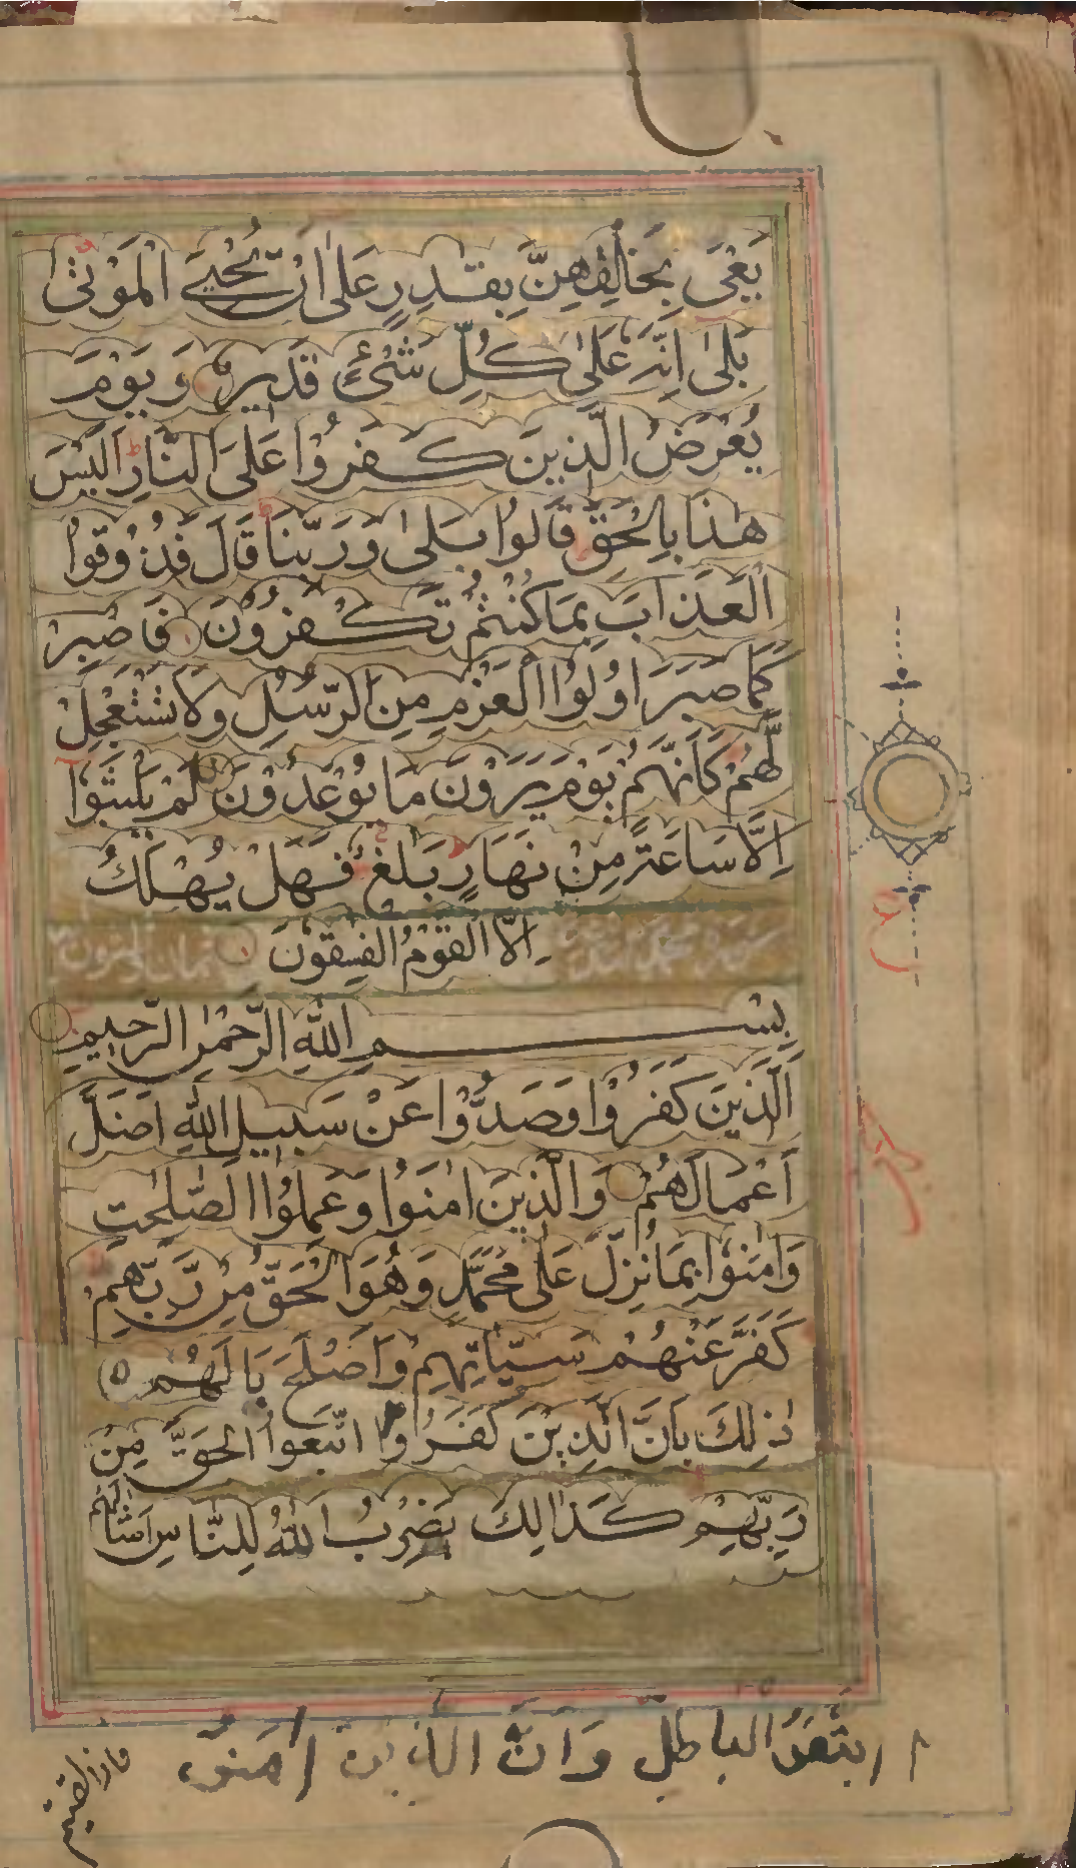 يَعْىَ بِخَلْقِهِنَّ بِقٰدِرٍ عَلٰى اَنْ يُّحْيِۦَ الْمَوْتٰى
بَلٰى اِنَّهٗ عَلٰى كُلِّ شَىْءٍ قَدِيْرٌ وَ يَوْمَ
يُعْرَضُ الَّذِينَ كَفَرُوْا عَلَى النَّارِ اَلَيْسَ
هٰذَا بِالْحَقِّ قَالُوْا بَلٰى وَرَبِّنَا قَالَ فَذُوْقُوا
الْعَذَابَ بِمَا كُنْتُمْ تَكْفُرُوْنَ فَاصْبِرْ
كَمَا صَبَرَ اُولُوا الْعَزْمِ مِنَ الرُّسُلِ وَلَا تَسْتَعْجِلْ
لَّهُمْ كَاَنَّهُمْ يَوْمَ يَرَوْنَ مَا يُوْعَدُوْنَ لَمْ يَلْبَثُوْٓا
اِلَّا سَاعَةً مِّنْ نَهَارٍ بَلٰغٌ فَهَلْ يُهْلَكُ
اِلَّا الْقَوْمُ الْفٰسِقُوْنَ
بِسْمِ اللّٰهِ الرَّحْمٰنِ الرَّحِيْمِ
اَلَّذِيْنَ كَفَرُوْا وَصَدُّوْا عَنْ سَبِيْلِ اللّٰهِ اَضَلَّ
اَعْمَالَهُمْ وَالَّذِيْنَ اٰمَنُوْا وَعَمِلُوا الصّٰلِحٰتِ
وَاٰمَنُوْا بِمَا نُزِّلَ عَلٰى مُحَمَّدٍ وَهُوَ الْحَقُّ مِنْ رَّبِّهِمْ
كَفَّرَ عَنْهُمْ سَيِّاٰتِهِمْ وَاَصْلَحَ بَالَهُمْ
ذٰلِكَ بِاَنَّ الَّذِيْنَ كَفَرُوا اتَّبَعُوا الْحَقَّ مِنْ
رَبِّهِمْ كَذٰالِكَ يَضْرِبُ اللّٰهُ لِلنَّاسِ اَمْثَالَهُمْ
الباطِلَ وَاَنَّ الَّذِينَ اٰمَنُوا